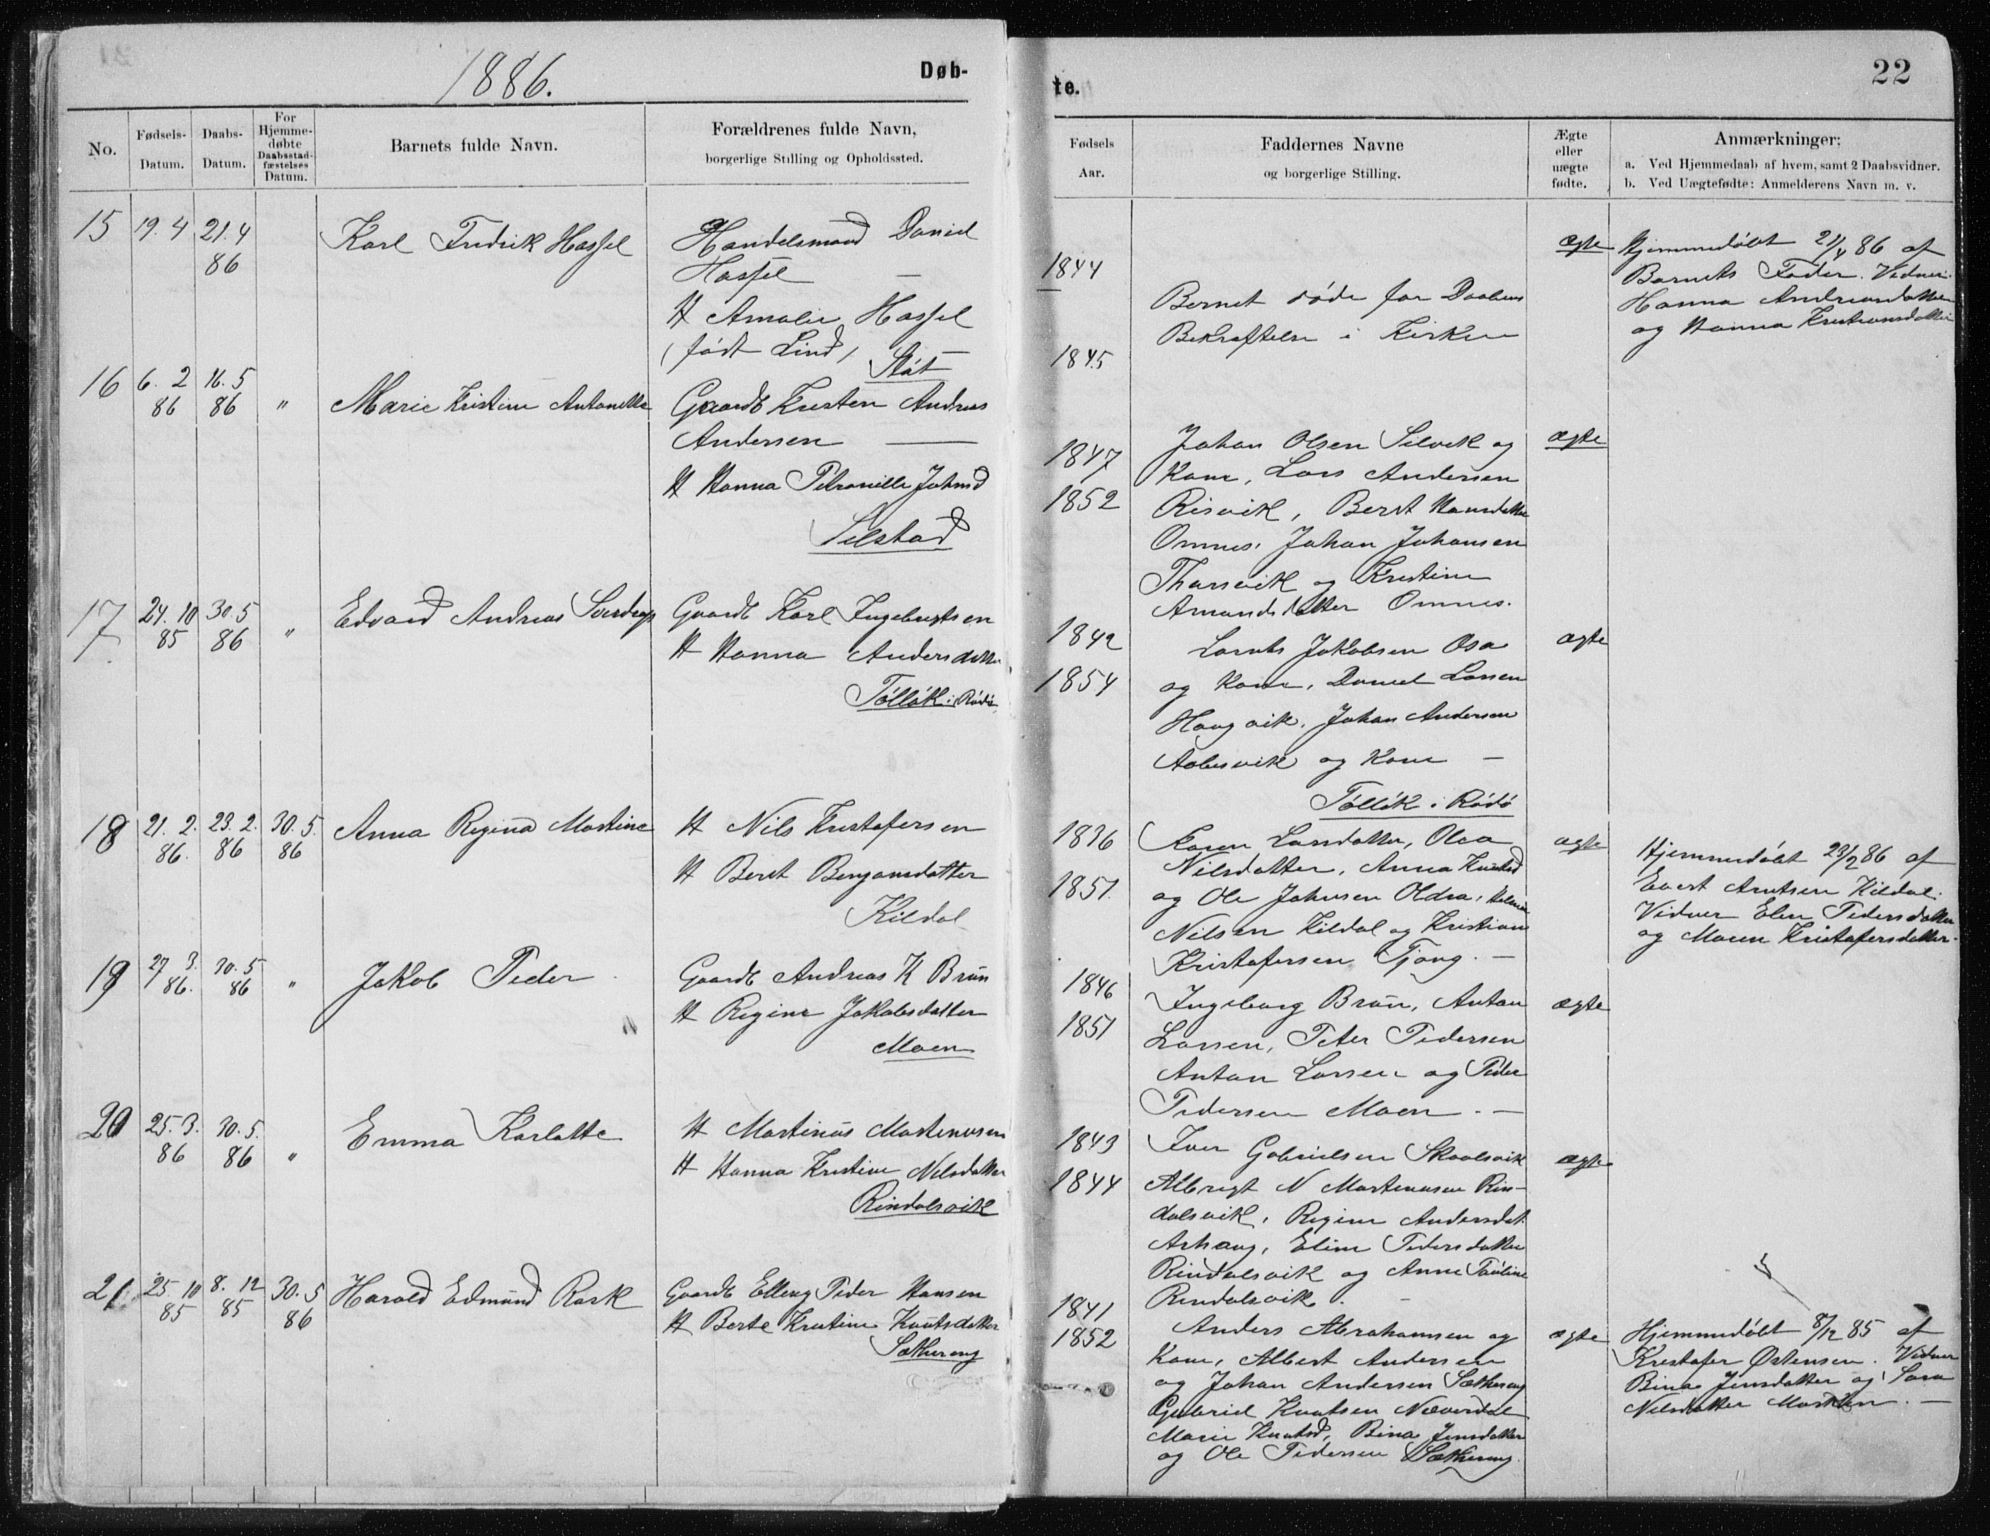 1886.
Døb-
No.
Fødsels-
Datum.
Daabs-
Datum.
For
Hjemme-
døbte
Daabsstad-
fæstelses
Datum.
Barnets fulde Navn.
Forældrenes fulde Navn,
borgerlige Stilling og Opholdssted.
15
19.4
21.4
86
Karl Fredrik Hassel
Handelsmand Daniel
Hassel —
H Amalie Hassel
(født Lind)
Støt
16
6. 2
86
16. 5
86
"
Marie Kristine Antonette
Gaardb Kristen Andreas
Andersen —
H Hanna Petronille Johnsd
Selstad
17
24. 10
85
30. 5
86
"
Edvard Andreas Sverdrup
Gaardb Karl Ingebrigtsen
H Hanna Andersdatter
Tøllåk i Rødø
18
21. 2.
86.
23. 2.
86
30. 5.
86
Anna Regina Martine
H Nils Kristofersen
H Berit Benjamsdatter
Kildal
19
27 3.
86.
30. 5
86
"
Jakob Peder
Gaardb Andreas K Brun
H Regine Jakobsdatter
Moen
20
25. 3.
86
30. 5.
86
"
Emma Karlotte
H Martinus Martenusen
H Hanna Kristine Nilsdatter
Rindalsvik
21
25. 10
85
8. 12
85
30. 5
86
Harald Edmund Rask
Gaardb Elling Peder Hansen
H Berte Kristine Knutsdatter
Sætherang
te.
22
Fødsels
Aar.
Faddernes Navne
og borgerlige Stilling.
Ægte
eller
uægte
fødte.
Anmærkninger;
a. Ved Hjemmedaab af hvem, samt 2 Daabsvidner.
b. Ved Uægtefødte: Anmelderens Navn m. v.
1844
1845
Bernet døde før Daabens
Bekræftelse i Kirken
ægte
Hjemmedøbt 21/4 86 af
Barnets Fader. Vidner
Hanna Andreasdatter
og Hanna Kristiansdatter
1847
1852
Johan Olsen Selvik og
Kone, Lars Andersen
Risvik, Berit Hansdatter
Omnes, Johan Johansen
Tharsvik og Kristine
Amundsdatter Omnes.
ægte
1842
1854
Lornts Jakobsen Osa
og Kone, Daniel Larsen
Haugvik, Johan Andersen
Aabesvik og Kone —
Tøllåk i Rødø
ægte
1836
1851.
Karen Larsdatter, Olaa
Nilsdatter, Anna Knutsd
og Ole Johnsen Oldra,
Nilsen Kildal og Kristian
Kristofersen Tjong. —
ægte
Hjemmedøbt 23/2 86 af
Evert Arntsen Kildal.
Vidner Elen Pedersdatter
og Maren Kristofersdatter.
1846
1851
Ingeborg Brun, Anton
Larsen, Peter Pedersen
Anton Larsen og Peder
Pedersen Moen. —
ægte
1843
1844
Iver Gabrielsen Skaalsvik
Albrigt N Martenusen Rin-
dalsvik, Regine Andersdat
Arhaug, Eline Pedersdatter
Rindalsvik og Anne Pauline
Rindalsvik. —
ægte
1841
1852
Anders Abrahamsen og
Kone, Albert Andersen
og Johan Andersen Sætherang
Gabriel Knutsen Næverdal
Marie Knutsd, Bina Jensdatter
og Ole Pedersen Sætherang.
ægte
Hjemmedøbt 8/12 85 af
Kristofer Østensen. Vidner
Bina Jensdatter og Sara
Nilsdatter —